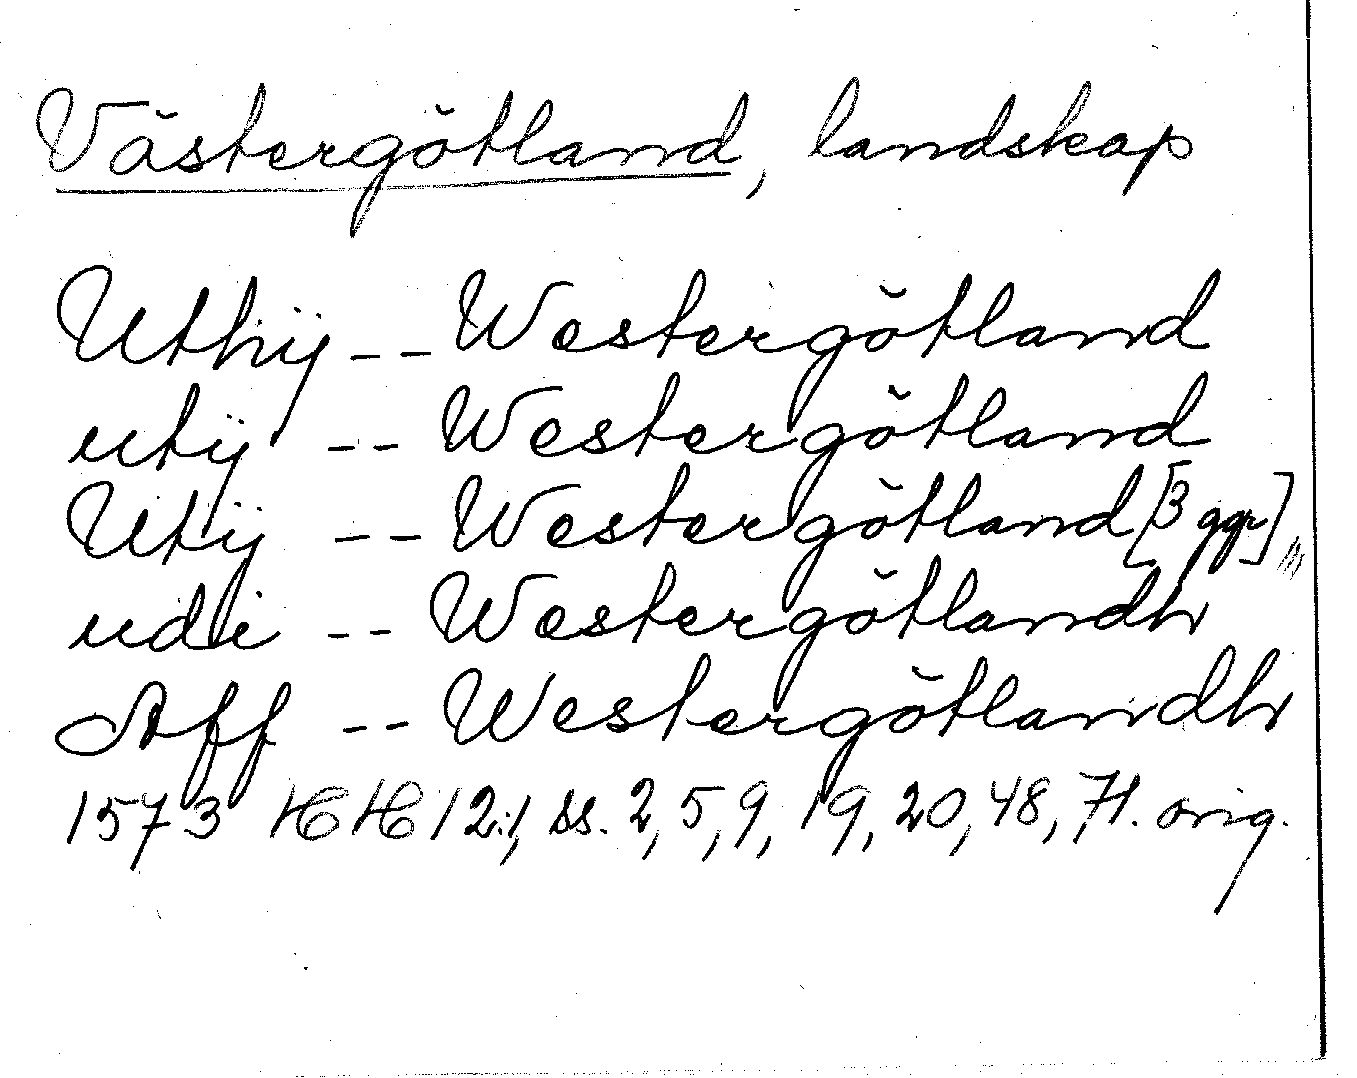 Västergötland, landskap
Uthÿ -- Westergötland
utÿ -- Westergötland
Utÿ -- Westergötland [3 ggr]
udi -- Westergötlandh
Aff -- Westergötlandh
1573 HH 12:1, ss. 2, 5, 9, 19, 20, 48, 71. orig.